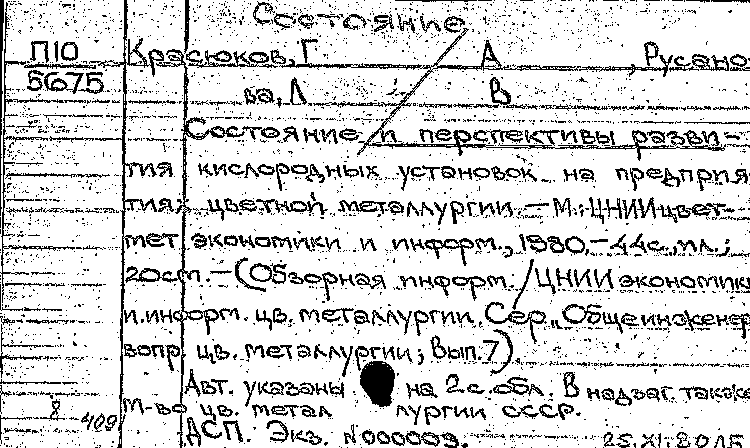 Состояние
П10 Красюков, Г. А , Русано-
5675 ва, Л В
Состояние и перспективы разви-
тия кислородных установок на предприя
тиях цветной металлургии. — М.: ЦНИИцвет-
мет экономики и информ., 1980. — 44с., ил.;
20см. — (Обзорная информ. / ЦНИИ экономики
и информ. цв. металлургии. Сер. „Общеинженер
вопр. цв. металлургии; Вып. 7).
Авт. указаны на 2 с. обл. В надзаг. также
8 409 М-во цв. метал лургии СССР.
ДСП. Экз. N000009. 25.XI.80